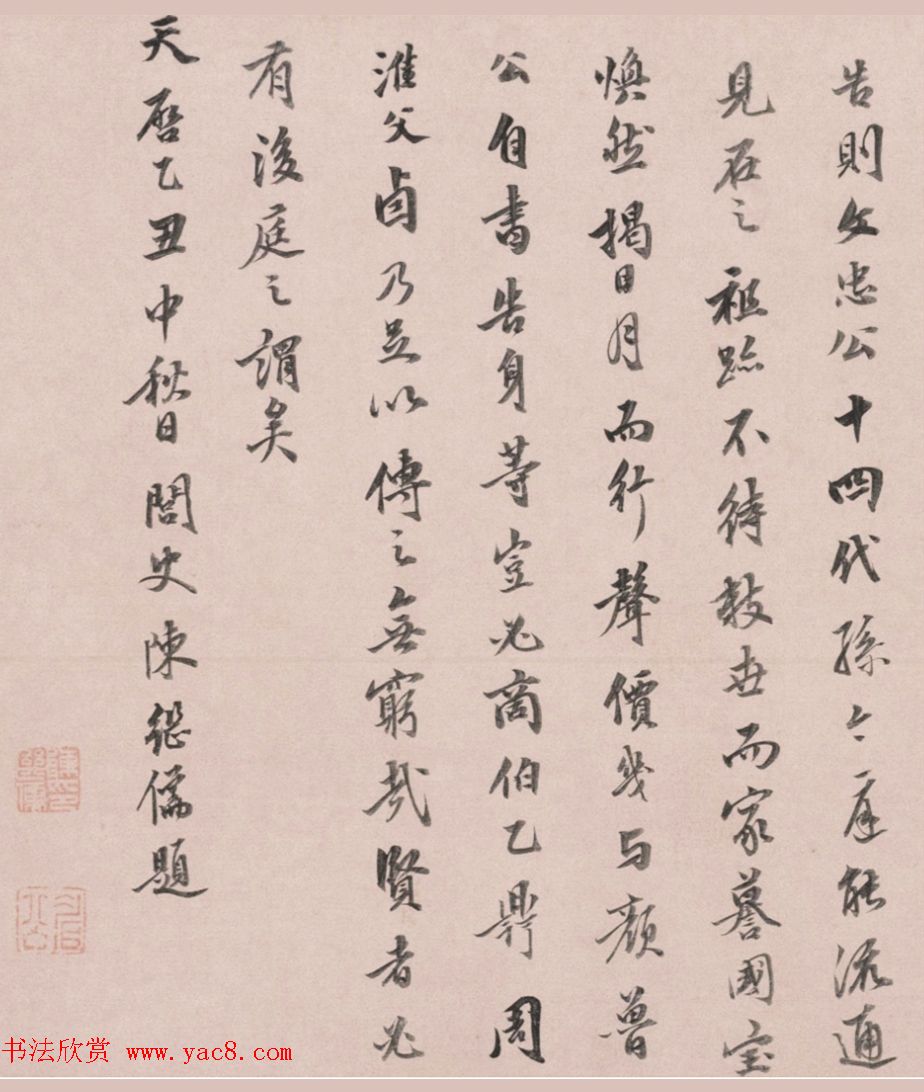 告則文忠公十四代孫能流通
見在之祖跡不待數世而家譽國宝
煥然揭日月而行聲價幾与顏魯
公自書告身等豈必商伯乙鼎周
淮父卣乃足以傳之無窮哉賢者必
有後庭之謂矣
天啓乙丑中秋日閭史陳繼儒題
书法欣赏 www.yac8.com